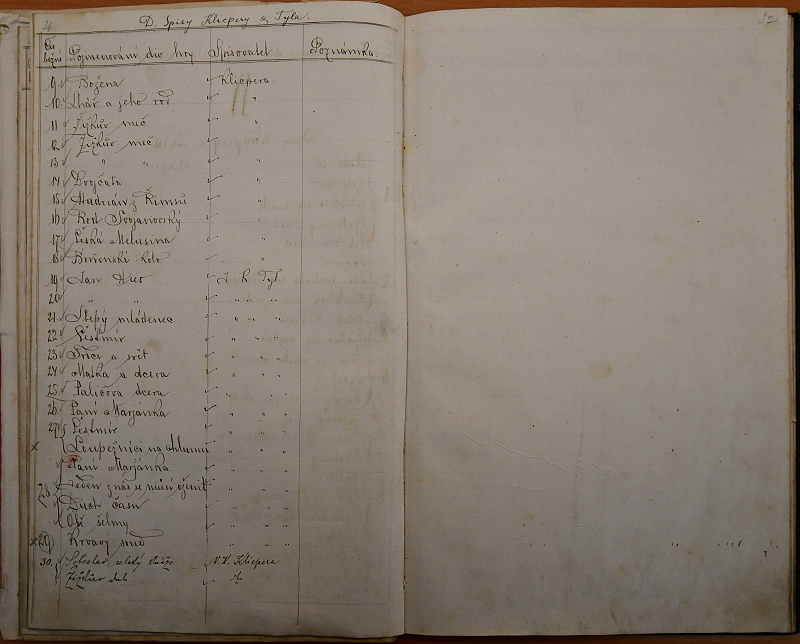 36
D. Spisy Klicpery a Tyla.
Čís. běžné Pojmenování div. hry Spisovatel Poznámka
9. Božena Klicpera
10. Lhář a jeho rod "
11. Žižkův meč "
12. Žižkův meč "
13. " " "
14. Dvojčata "
15. Hadrián z Římsů "
16. Rod Svojanovský "
17. Česká Melusina "
18. "
19. Jan Hus J. K. Tyl
20. " " " " "
21. Slepý mládenec " " "
22. Čestmír " " "
23. Srdce a svět " " "
24. Matka a dcera " " "
25. Paličova dcera " " "
26. Paní Marjánka " " "
27. Čestmír " " "
x Loupežníci na chlumu " " "
Paní Marjánka " " "
28 Jeden z nás se musí oženit " " "
Duch času " " "
Obě šelmy " " "
x 29 Krvavý soud " " "
30. Soběslav, selský kníže V. K. Klicpera
Žižkův dub dto
37